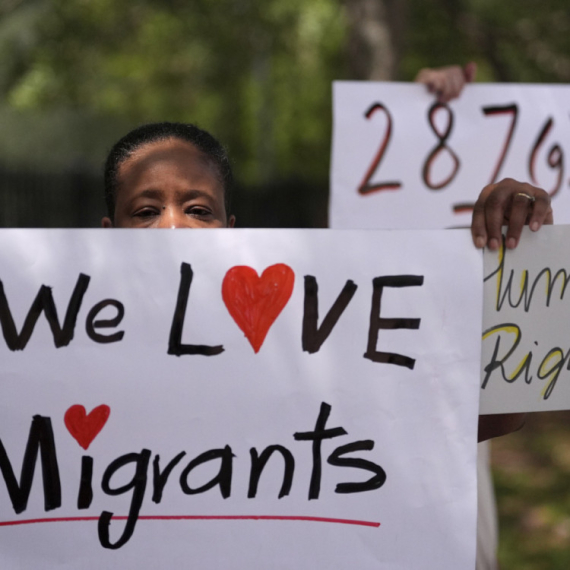 We LOVE
Migrants
287(g
Hum
Rig